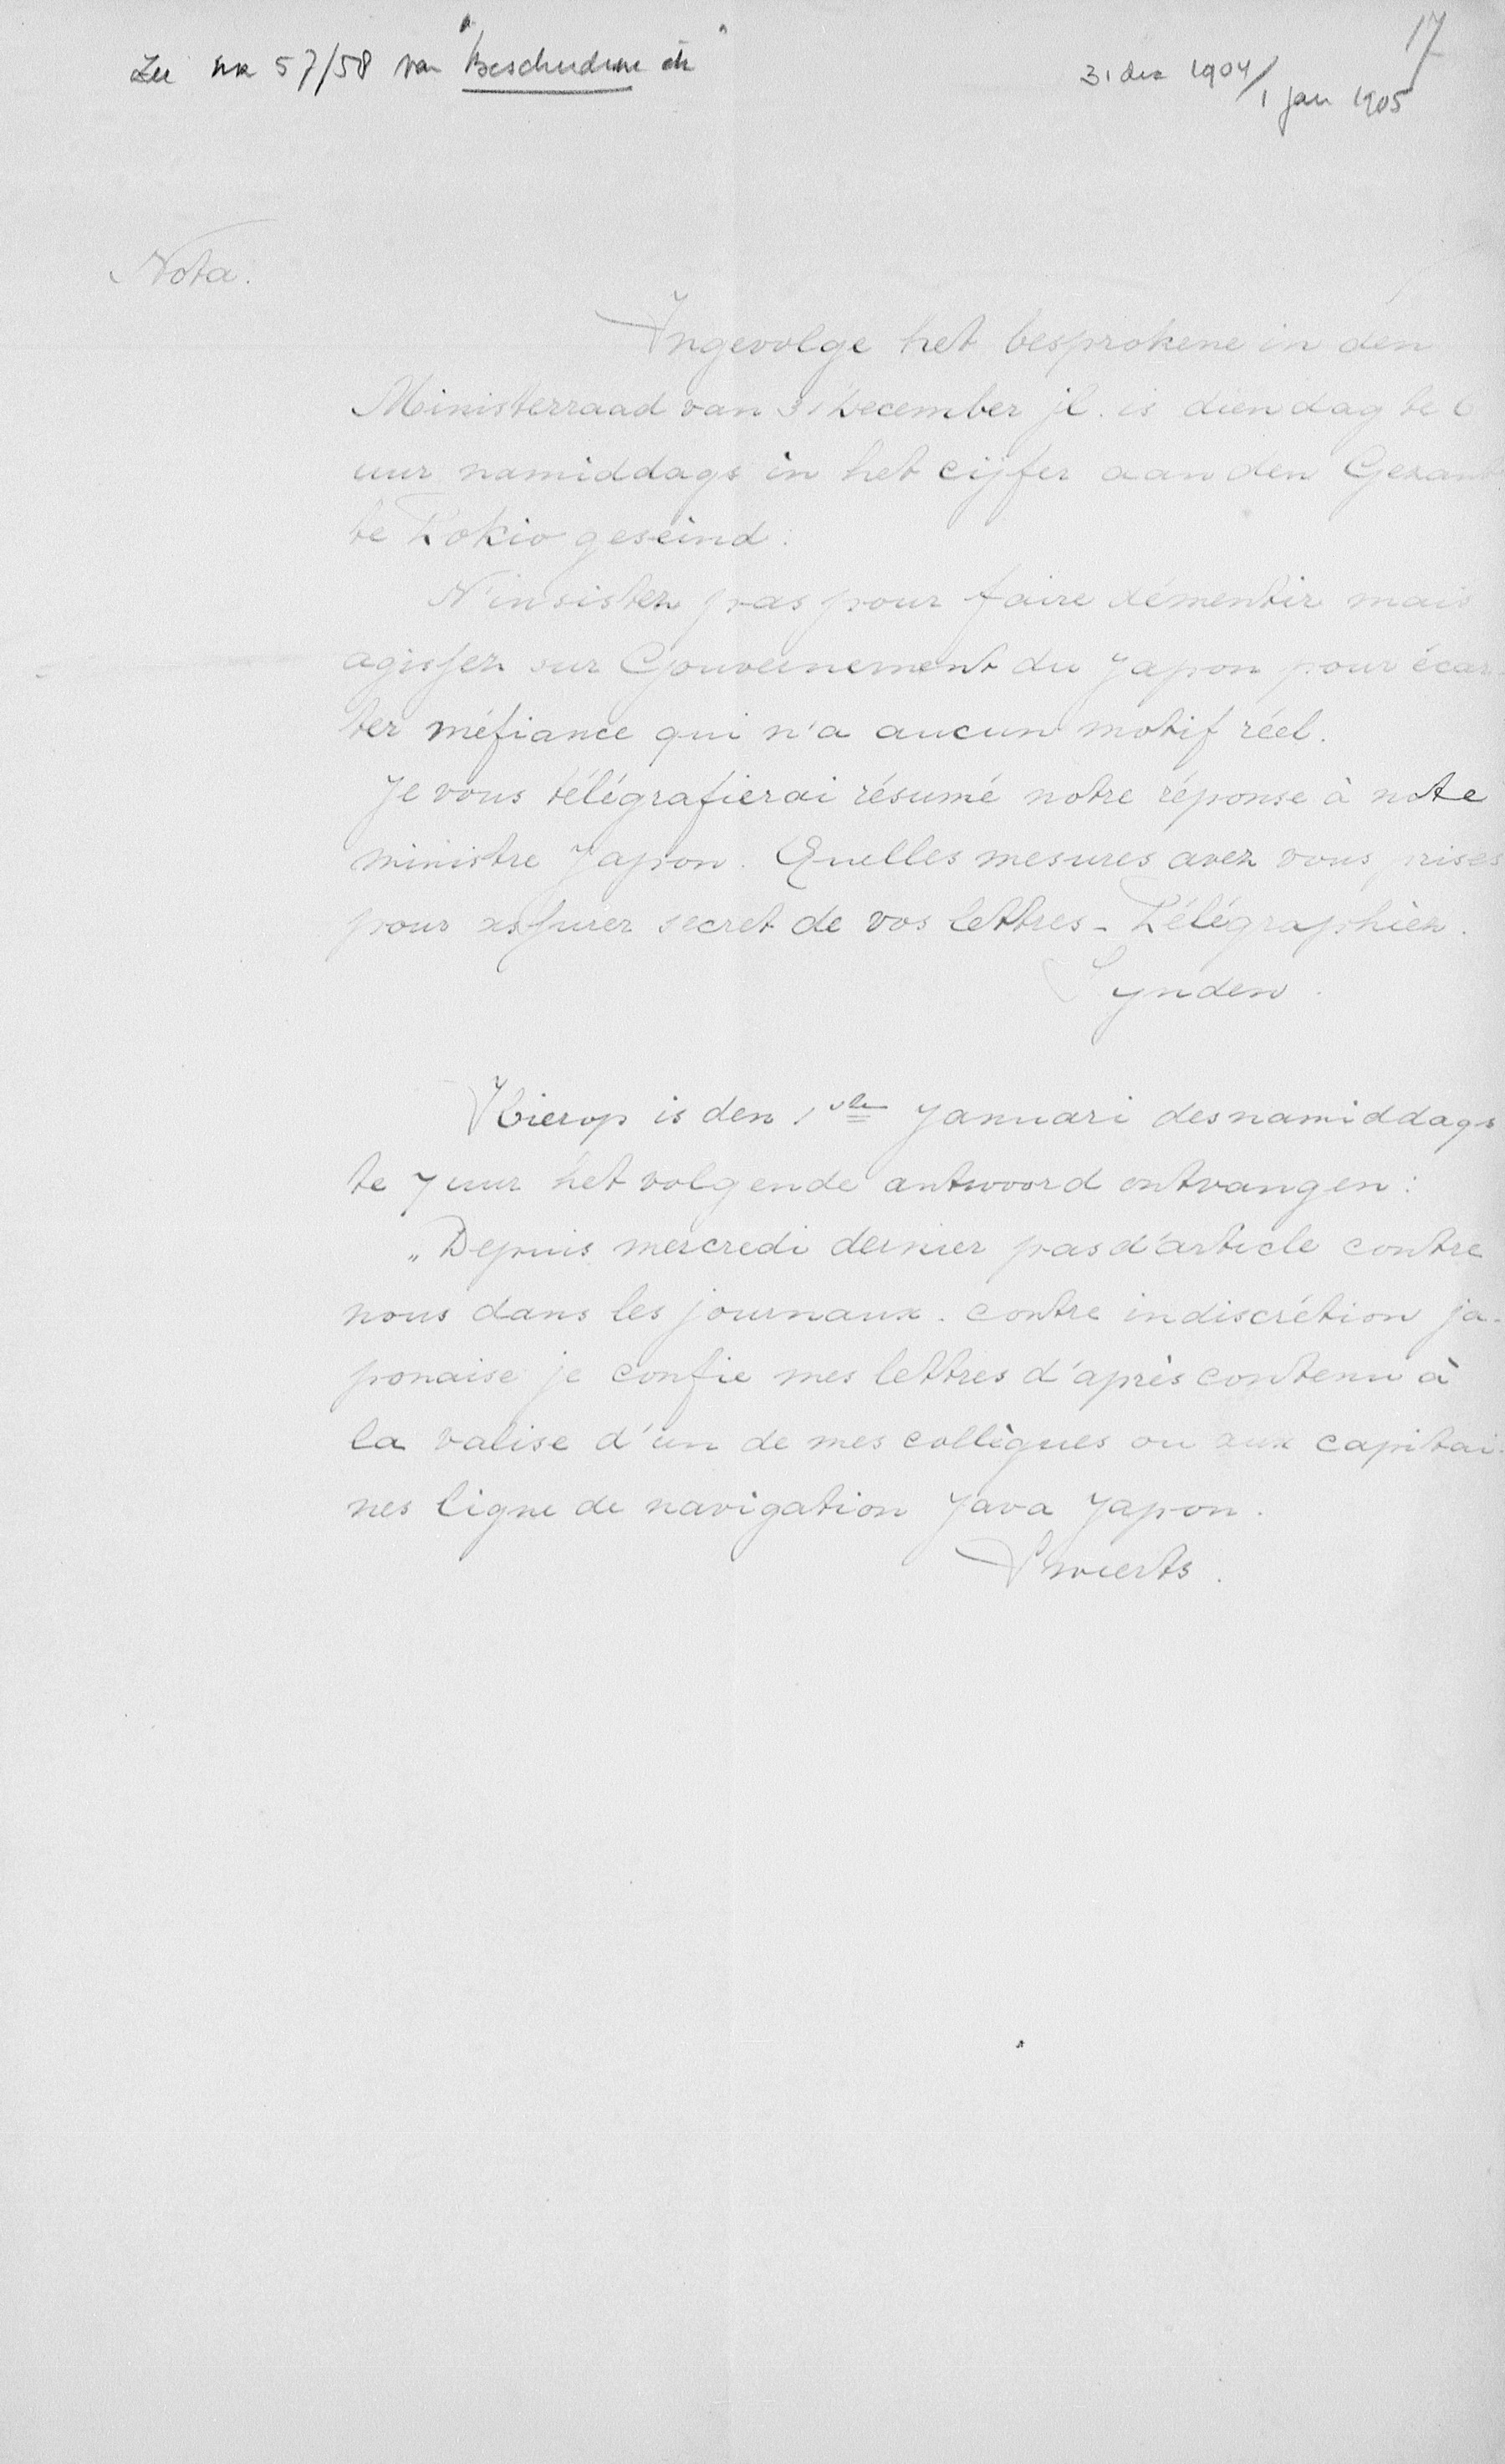 17
Zie nr 57/58 van "Bescheiden etc"
31 dec 1904/
1 jan 1905
Nota.
Ingevolge het besprokene in den
Ministerraad van 31 December jl. is dien dag te 6
uur namiddags in het cijfer aan den Gezant
te Tokio geseind:
N'insistez pas pour faire démentir mais
agissez sur Gouvernement du Japon pour écar-
ter méfiance qui n'a aucun motif réel.
Je vous télégrafierai résumé notre réponse à note
ministre Japon. Quelles mesures avez vous prises
pour assurer secret de vos lettres - Télégraphiez.
Lynden.
Hierop is den 1ste Januari des namiddags
te 7 uur het volgende antwoord ontvangen:
„Depuis mercredi dernier pas d'article contre
nous dans les journaux. contre indiscrétion ja-
ponaise je confie mes lettres d'après contenu à
la valise d'un de mes collègues ou aux capitai-
nes ligne de navigation Java Japon.
Sweerts.